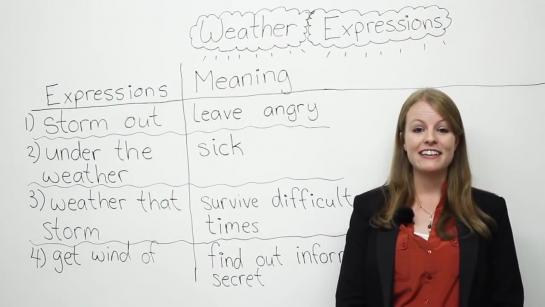 Weather Expressions
Expressions Meaning
1) Storm out leave angry
2) under the sick
weather
3) weather that survive difficult
storm times
4) get wind of find out
secret